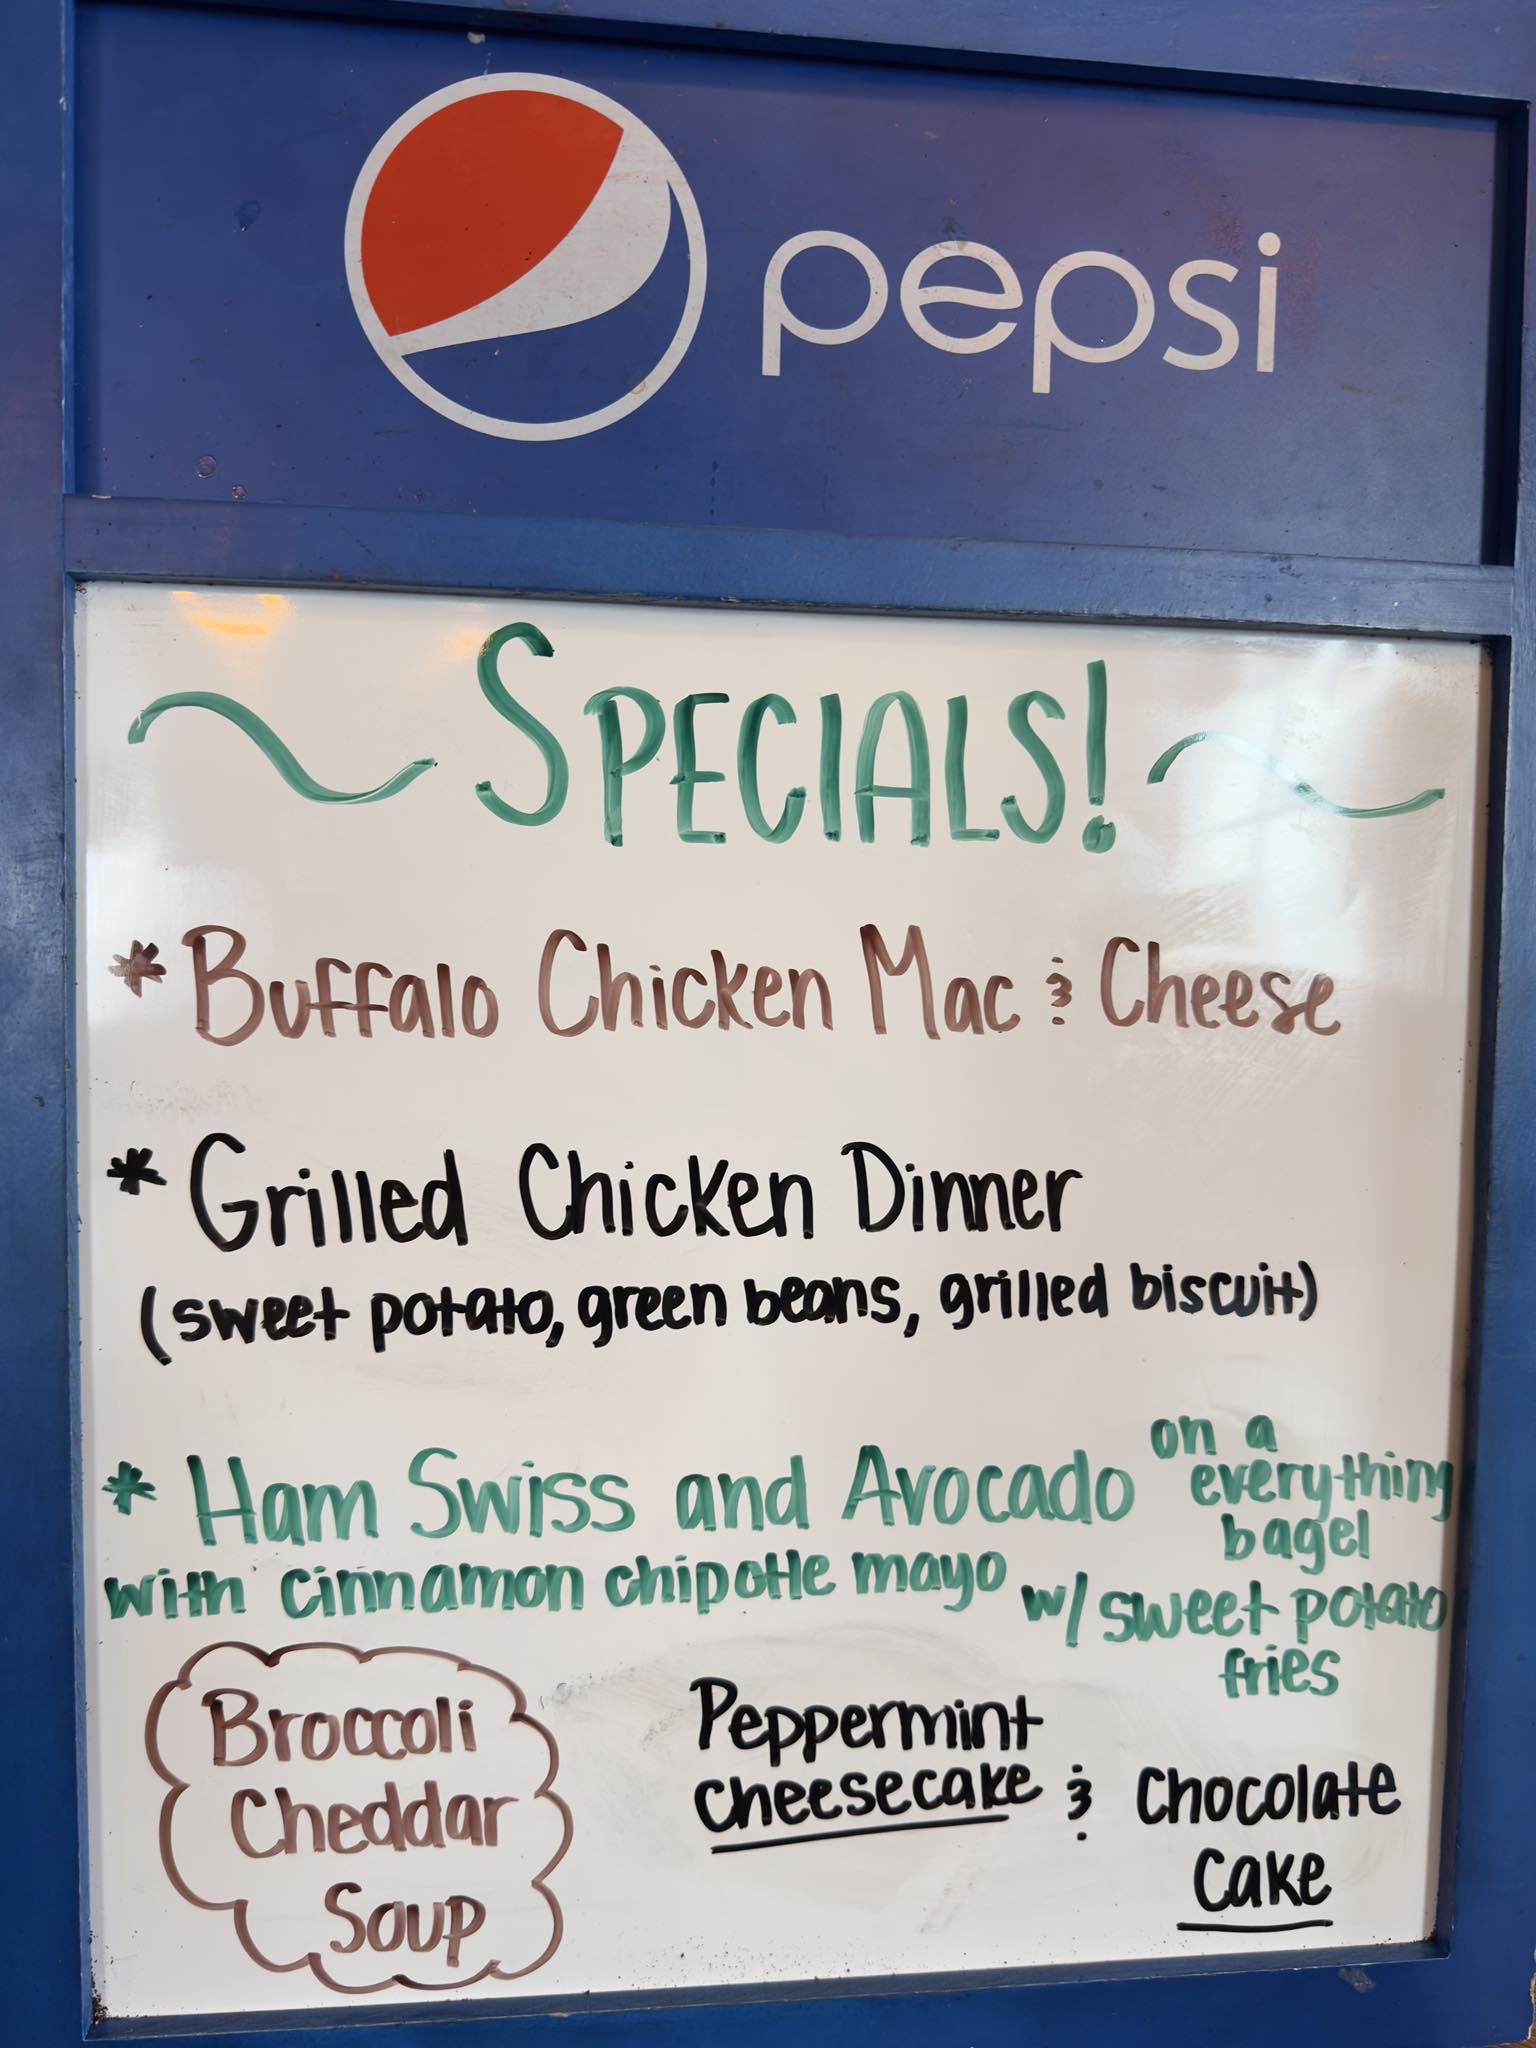 pepsi
SPECIALS!
* Buffalo Chicken Mac & Cheese
* Grilled Chicken Dinner
(sweet potato, green beans, grilled biscuit)
* Ham Swiss and Avocado
with cinnamon chipotle mayo
on a
everything
bagel
w/ sweet potato
fries
Broccoli
Cheddar
Soup
Peppermint
cheesecake & Chocolate
Cake